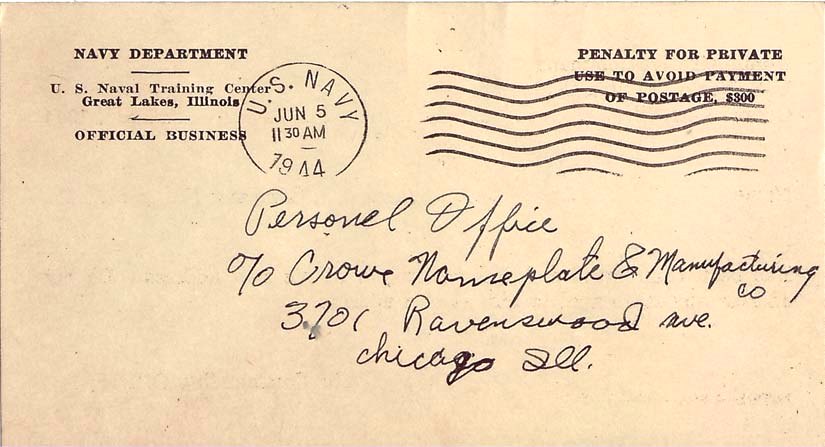 NAVY DEPARTMENT
U. S. Naval Training Center
Great Lakes, Illinois
OFFICIAL BUSINESS
U.S. NAVY
JUN 5
11 30 AM
1944
PENALTY FOR PRIVATE
USE TO AVOID PAYMENT
OF POSTAGE, $300
Personel Office
c/o Crowe Nameplate & Manufacturing
co
3701 Ravenswood ave.
chicago Ill.